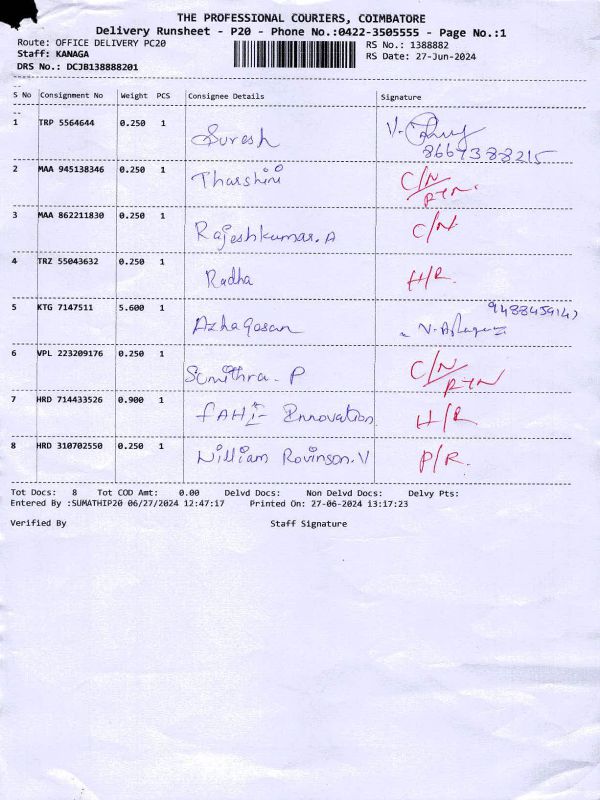 THE PROFESSIONAL COURIERS, COIMBATORE
Delivery Runsheet - P20 - Phone No.:0422-3505555 - Page No.:1
Route: OFFICE DELIVERY PC20 RS No.: 1388882
Staff: KANAGA RS Date: 27-Jun-2024
DRS No.: DCJB138888201
S No Consignment No Weight PCS Consignee Details Signature
1 TRP 5564644 0.250 1 Suresh V.
8667388215
2 MAA 945138346 0.250 1 Tharshini C/N
RTN.
3 MAA 862211830 0.250 1 Rajeshkumar.A C/N
4 TRZ 55043632 0.250 1 Radha H/R.
5 KTG 7147511 5.600 1 Azhagasan
6 VPL 223209176 0.250 1 Sumithra. P C/N
RTN
7 HRD 714433526 0.900 1 FAHI- Innovation H/R
8 HRD 310702550 0.250 1 William Rovinson.V P/R.
Tot Docs: 8 Tot COD Amt: 0.00 Delvd Docs: Non Delvd Docs: Delvy Pts:
Entered By :SUMATHIP20 06/27/2024 12:47:17 Printed On: 27-06-2024 13:17:23
Verified By Staff Signature